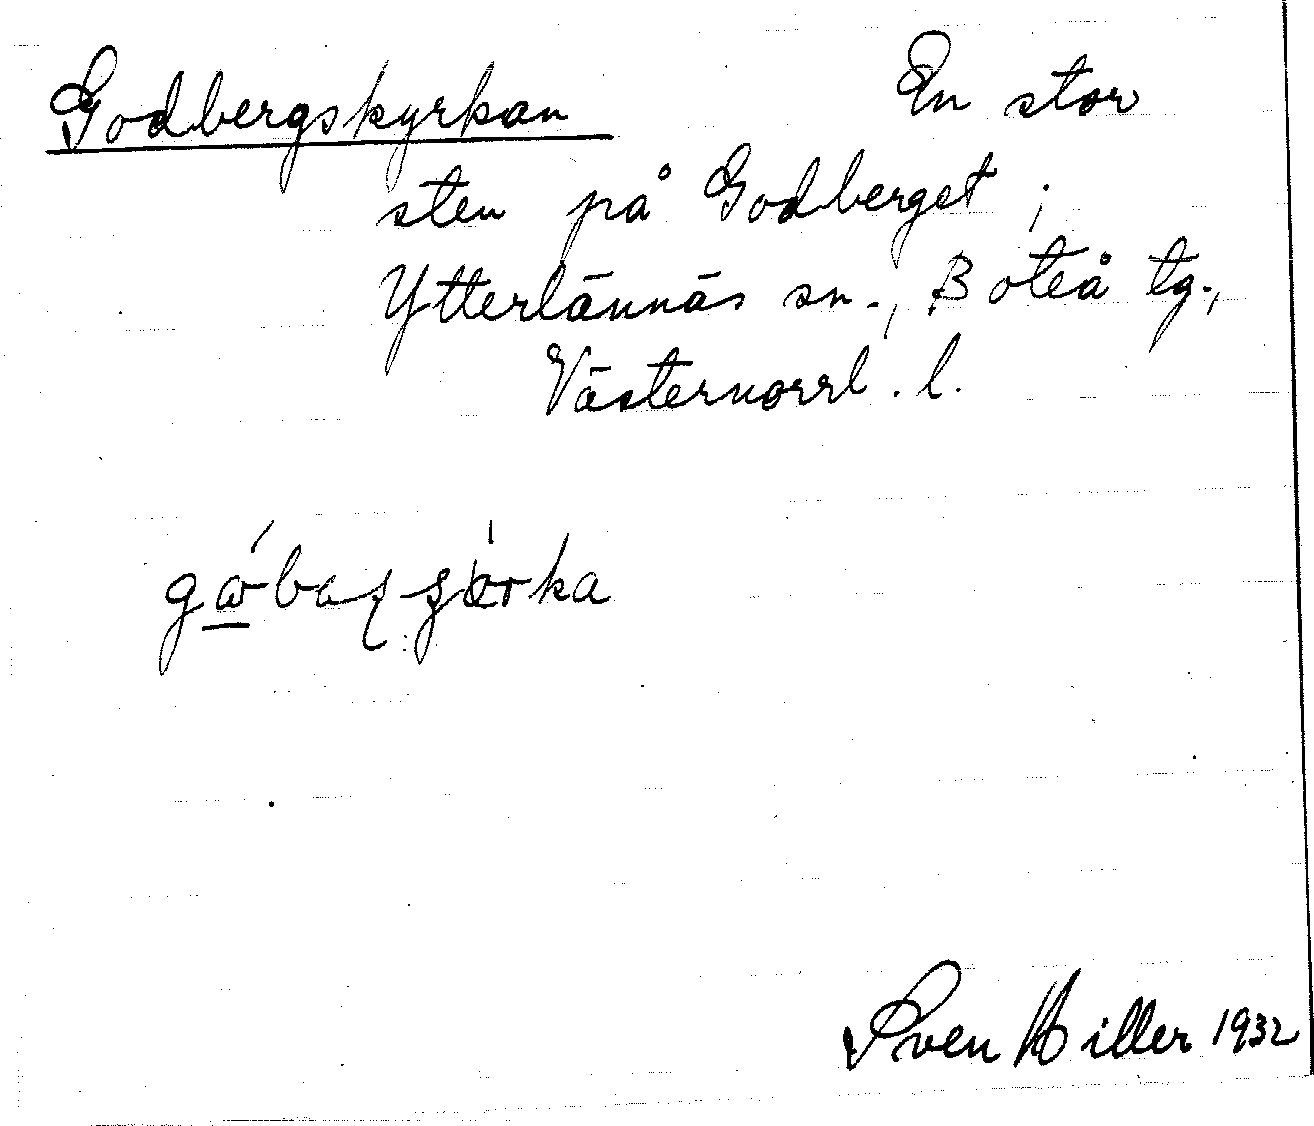 Godbergskyrkan En stor
sten på Godberget,
Ytterlännäs sn., Boteå tg.,
Västernorrl. l.
Sven Hiller 1932